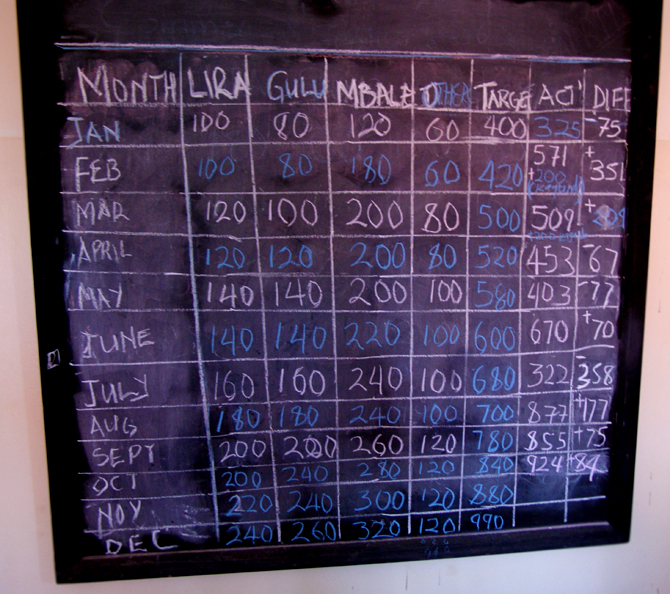 MONTH LIRA GULU MBALE OTHER TARGE ACT' DIFF
JAN 100 80 120 60 400 325 -75
FEB 100 80 180 60 420 571 +200 +351
MAR 120 100 200 80 500 509 +209
APRIL 120 120 200 80 520 453 -67
MAY 140 140 200 100 580 403 -77
JUNE 140 140 220 100 600 670 +70
JULY 160 160 240 100 680 322 -358
AUG 180 180 240 100 700 877 +177
SEPT 200 200 260 120 780 855 +75
OCT 200 240 280 120 840 924 +84
NOV 220 240 300 120 880
DEC 240 260 320 120 990